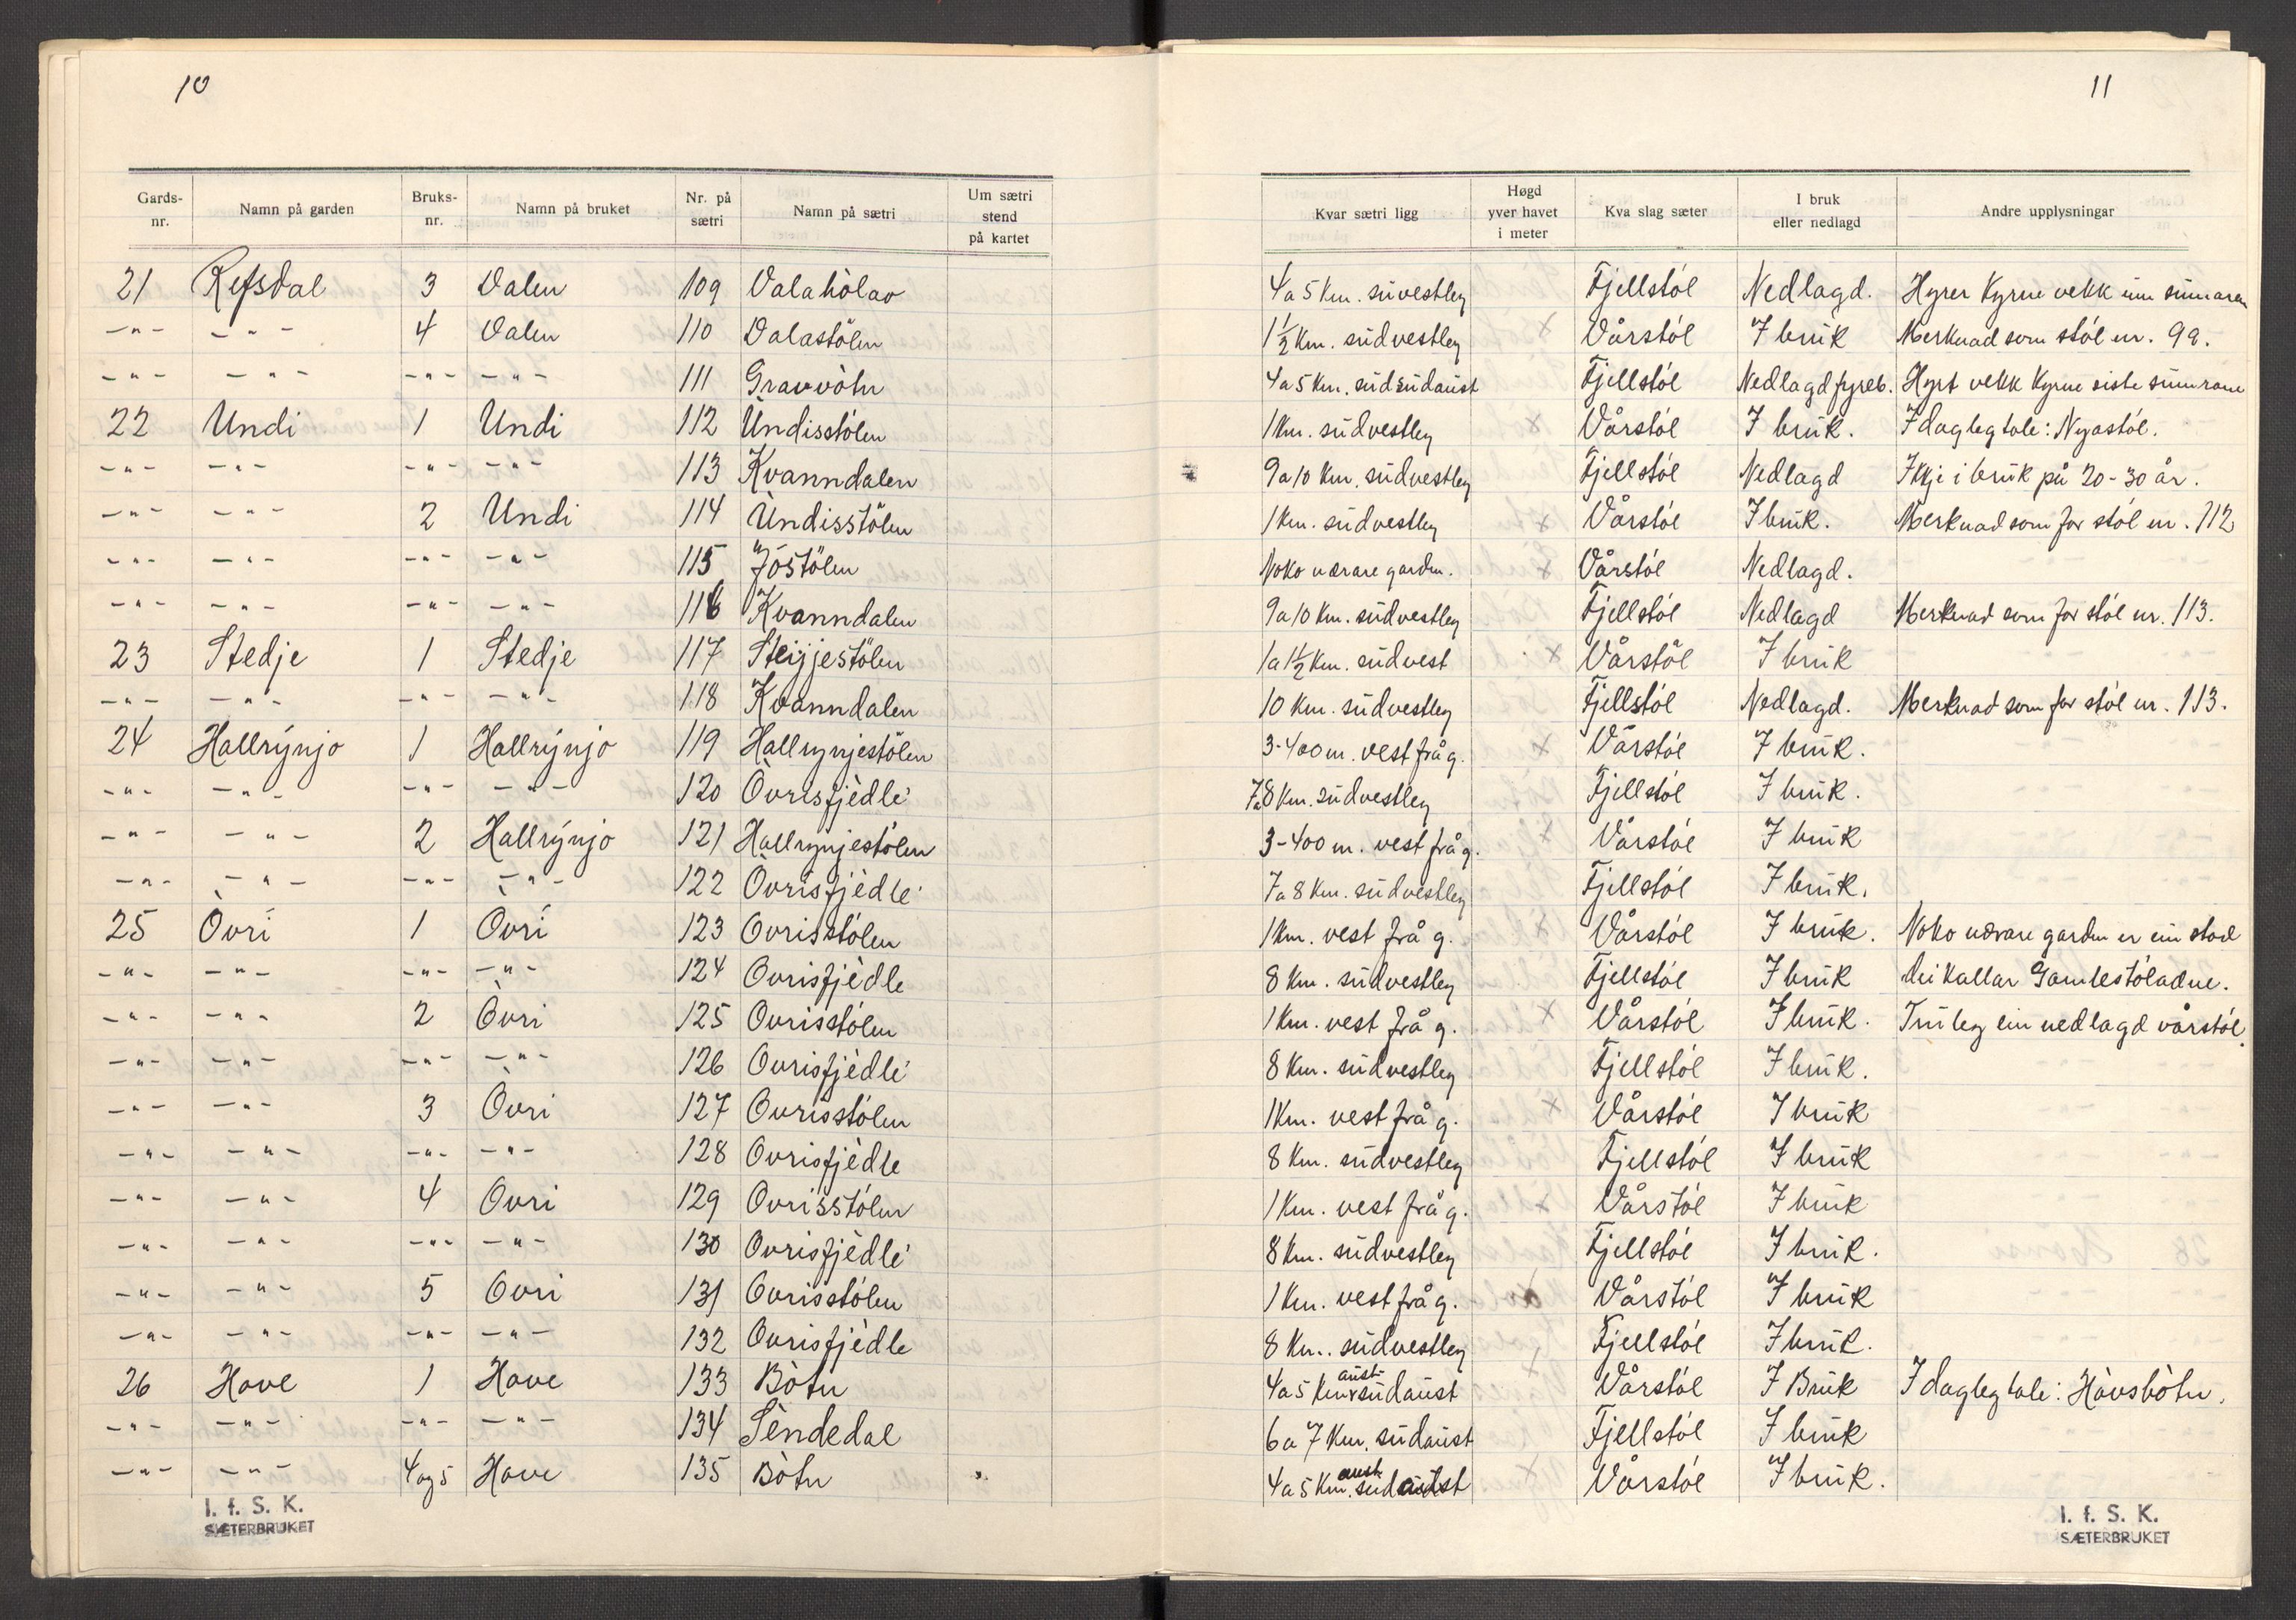 10
Gards-nr. Namn på garden Bruks-nr. Namn på bruket Nr. på sætri Namn på sætri Um sætri stend på kartet
21 Refsdal 3 Dalen 109 Dalahòlao
-"- -"- 4 Dalen 110 Dalastölen
-"- -"- -"- -"- 111 Gravvòtn
22 Undi 1 Undi 112 Undisstólen
-"- -"- -"- -"- 113 Kvanndalen
-"- -"- 2 Undi 114 Undisstölen
-"- -"- -"- -"- 115 Jöstölen
-"- -"- -"- -"- 116 Kvanndalen
23 Stedje 1 Stedje 117 Steijjestölen
-"- -"- -"- -"- 118 Kvanndalen
24 Hallrýnjo 1 Hallrýnjo 119 Hallrynjestölen
-"- -"- -"- -"- 120 Òvrisfjèdle
-"- -"- 2 Hallrýnjo 121 Hallrynjestölen
-"- -"- -"- -"- 122 Òvrisfjèdle
25 Òvri 1 Òvri 123 Ovrisstólen
-"- -"- -"- -"- 124 Ovrisfjèdle
-"- -"- 2 Òvri 125 Ovrisstólen
-"- -"- -"- -"- 126 Ovrisfjèdle
-"- -"- 3 Òvri 127 Ovrisstólen
-"- -"- -"- -"- 128 Ovrisfjèdle
-"- -"- 4 Ovri 129 Ovrisstólen
-"- -"- -"- -"- 130 Ovrisfjèdle
-"- -"- 5 Ovri 131 Ovrisstólen
-"- -"- -"- -"- 132 Ovrisfjèdle
26 Hove 1 Hove 133 Bòtn
-"- -"- -"- -"- 134 Sèndedal
-"- -"- 4 og 5 Hove 135 Bòtn
I. f. S. K.
SÆTERBRUKET
11
Kvar sætri ligg Høgd yver havet i meter Kva slag sæter I bruk eller nedlagd Andre upplysningar
4 a 5 km. suvestleg Fjellstól Nedlagd. Hyrer kyrne vekk um sumaren
1 1/2 km. sudvestleg x Vårstól I bruk Merknad som stól nr. 99.
4 a 5 km. sudsudaust Fjellstól Nedlagd fyreb. Hyrt vekk kyrne siste sumrane
1 km. sudvestleg x Vårstól I bruk. I dagleg tale: Nyastól.
9 a 10 km. sudvestleg Fjellstól Nedlagd Ikkje i bruk på 20-30 år.
1 km. sudvestleg x Vårstól I bruk. Merknad som for stól nr. 112
Noko nærare garden. x Vårstól Nedlagd.
9 a 10 km. sudvestleg Fjellstól Nedlagd Merknad som for stól nr. 113.
1 a 1 1/2 km. sudvest x Vårstål I bruk
10 km. sudvestleg Fjellstól Nedlagd. Merknad som for stól nr. 113.
3-400 m. vest frå g. x Vårstól I bruk.
7 a 8 km. sudvestleg Fjellstól I bruk.
3-400 m. vest frå g. x Vårstól I bruk
7 a 8 km. sudvestleg Fjellstól I bruk.
1 km. vest frå g. x Vårstól I bruk. Noko nærare garden er ein stad
8 km. sudvestleg Fjellstól I bruk dei kallar Gamlestóladne.
1 km. vest frå g. x Vårstól I bruk. Truleg ein nedlagd vårstól.
8 km. sudvestleg Fjellstól I bruk.
1 km. vest frå g. x Vårstól I bruk
8 km. sudvestleg Fjellstól I bruk
1 km. vest frå g. x Vårstól I bruk
8 km. sudvestleg Fjellstól I bruk.
1 km. vest frå g. x Vårstól I bruk
8 km. sudvestleg Fjellstól I bruk.
4 a 5 km. aust-sudaust x Vårstól I Bruk I dagleg tale: Hòvsbòtn.
6 a 7 km. sudaust Fjellstól I bruk
4 a 5 km. aust-sudaust x Vårstól I bruk.
I. f. S. K.
SÆTERBRUKET